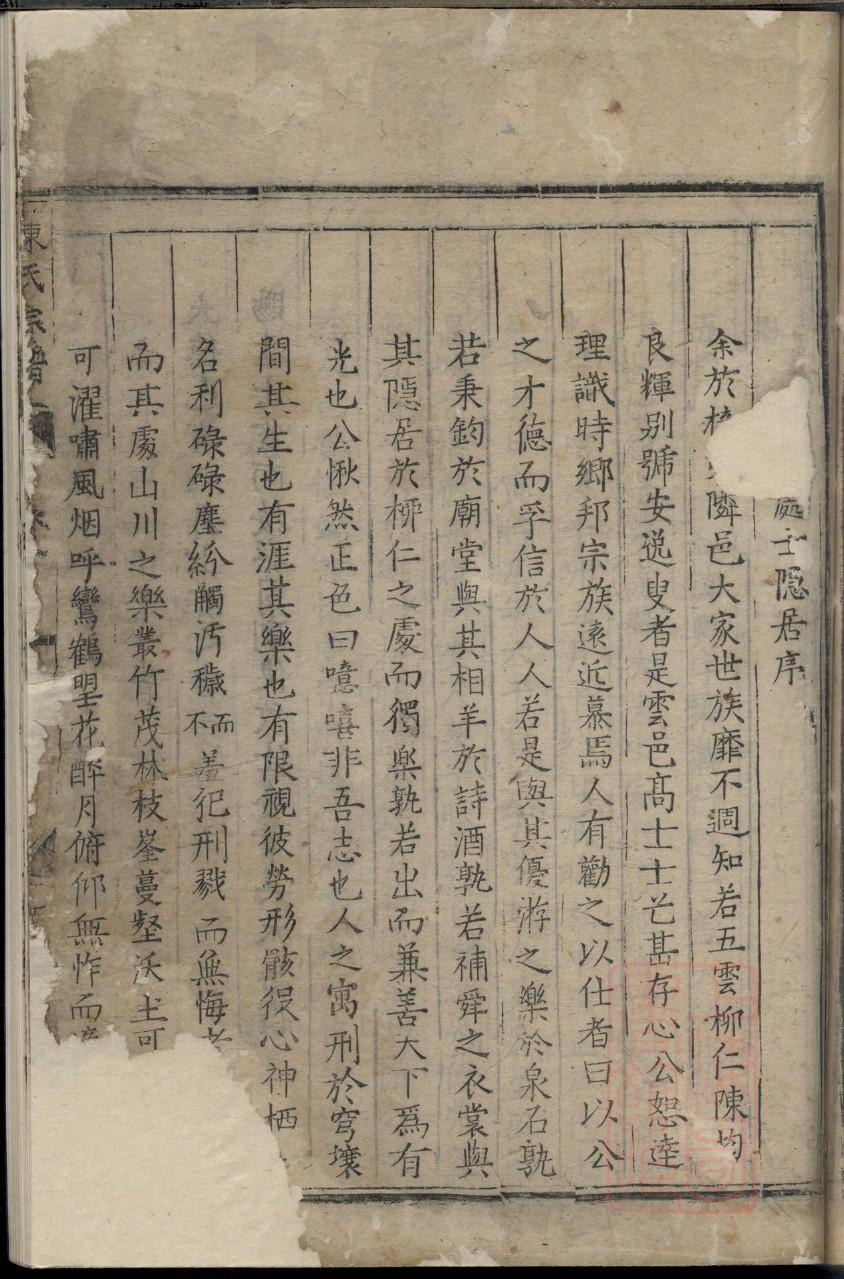 處士隱居序
余於隣邑大家世族靡不週知若五雲柳仁陳均
良輝别號安逸叟者是雲邑高士士芒甚存心公恕逹
理識時鄉邦宗族遠近慕焉人有勸之以仕者曰以公
之才德而孚信於人人若是與其優游之樂於泉石孰
若秉鈞於廟堂與其相羊於詩酒孰若補舜之衣裳與
其隠居於柳仁之處而獨樂孰若出而兼善天下爲有
光也公愀然正色曰噫嘻非吾志也人之寓刑於穹壤
間其生也有涯其樂也有限視彼勞形骸役心神栖
名利碌碌塵紛觸汚穢而不羞犯刑戮而無悔者
而其處山川之樂叢竹茂林枝峯蔓壑沃土可
可濯嘯風烟呼鸞鶴望花醉月俯仰無怍而
陳氏宗譜